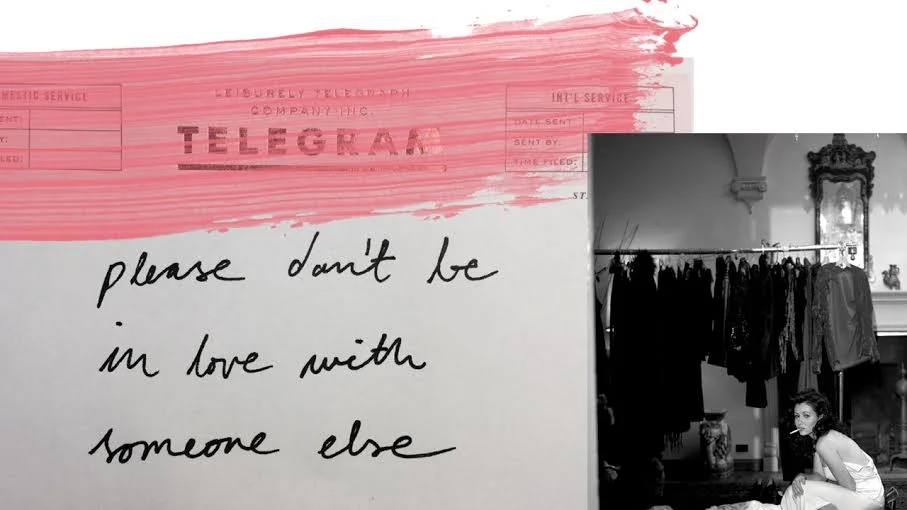 LEISURELY TELEGRAPH
COMPANY INC.
TELEGRAM
INT'L SERVICE
DATE SENT:
SENT BY:
TIME FILED:
please don't be
in love with
someone else